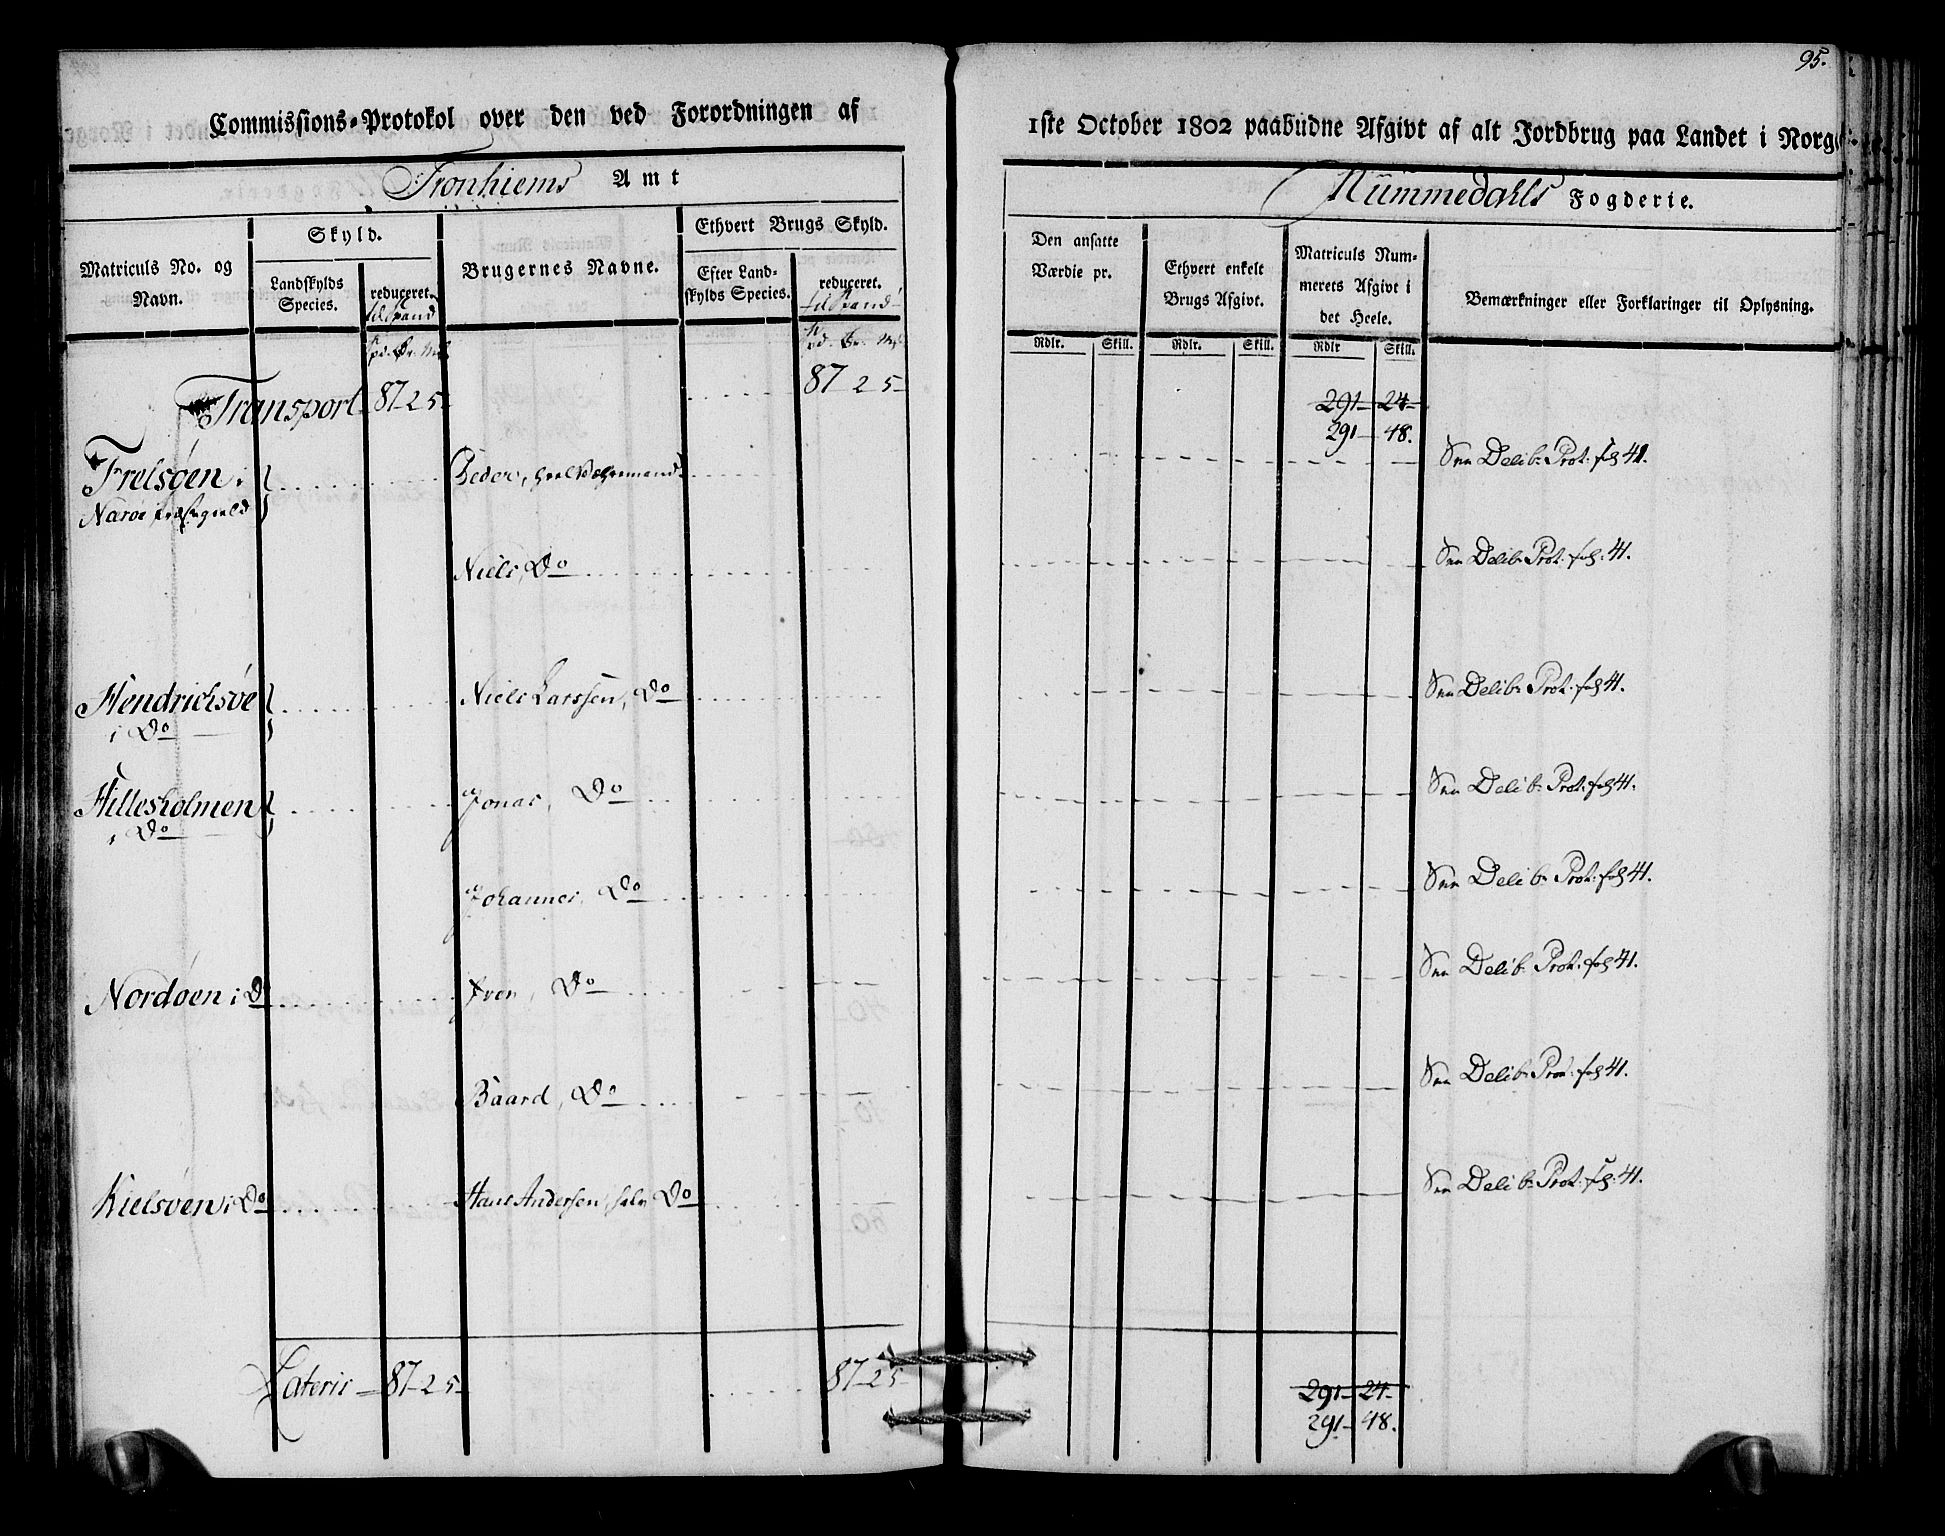 95.
Commissions-Protokol over den ved Forordningen af 1ste October 1802 paabudne Afgivt af alt Jordbrug paa Landet i Norge.
Tronhiems Amt
Nummedahls Fogderie.
Matriculs No. og Navn.
Skyld.
Landskylds Species.
reduceret. til Spand
Spd. Ør. Mk.
Brugernes Navne.
Ethvert Brugs Skyld.
Efter Landskylds Species.
reduceret. til Spand
Spd. Ør. Mk.
Den ansatte Værdie pr.
Rdlr. Skill.
Ethvert enkelt Brugs Afgivt.
Rdlr. Skill.
Matriculs Nummerets Afgivt i det Heele.
Rdlr Skill.
Bemærkninger eller Forklaringer til Oplysning.
Transport 87-2 5- 87 2 5- 291-24-
291-48.
Frelsøen i Peder, See Delib: Prot: fol 41.
Narøe Præstegield
Niels, Do See Delib: Prot: fol: 41.
Hendrichsøe Niels Larssen, Do See Delib: Prot: fol 41.
i Do
Hillesholmen Jonas, Do See Delib: Prot: fol 41.
i Do
Johannes, Do See Delib: Prot: fol 41.
Nordøen i Do Iver, Do See Delib: Prot: fol 41.
Baard, Do See Delib: Prot: fol 41.
Kielsøen i Do Hans Andersen, Do See Delib: Prot: fol: 41.
Lateris 87-2 5- 87-2 5- 291-24-
291-48.